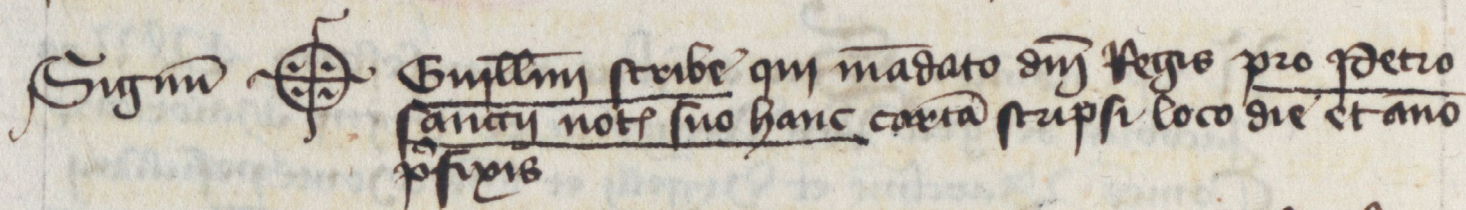 Signũ Guill̃mi scribe qui mãdato dñi Regis pro Petro
sanccii not̃ suo hanc cartã scripsi loco die et año
p̃fixis